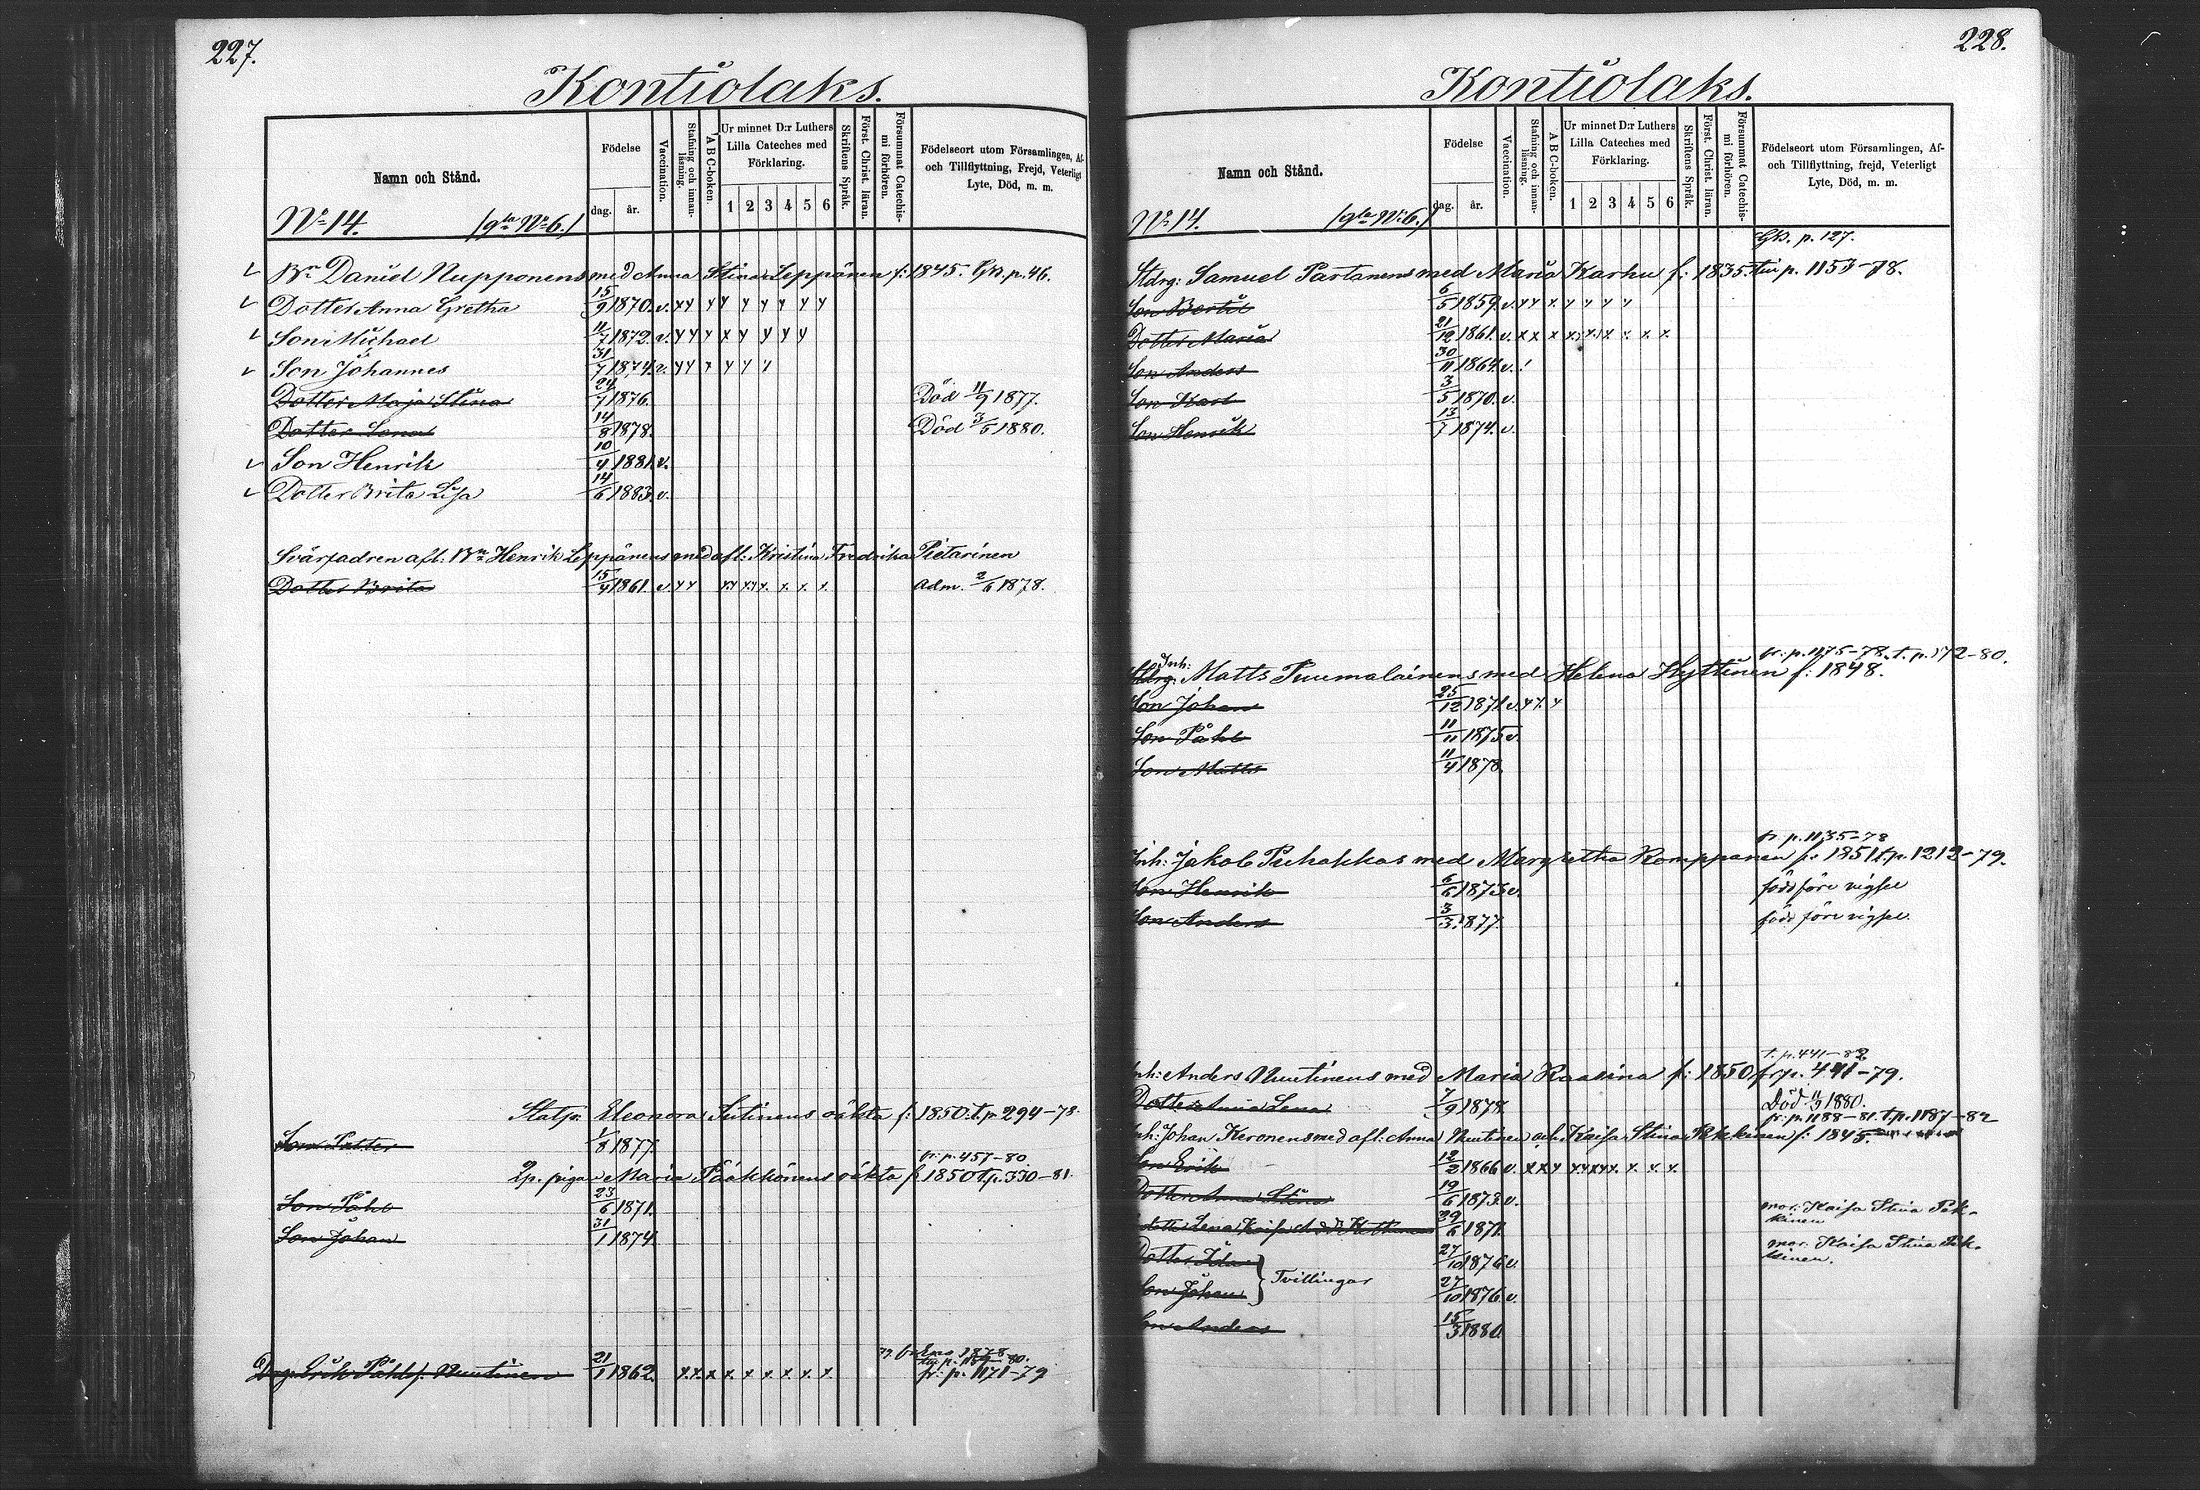 227.
Kontiolaks.
Namn och Stånd.
Födelse
dag. år.
Vaccination.
Stafning och innanläsning.
A B C-boken.
Ur minnet D:r Luthers Lilla Cateches med Förklaring.
1 2 3 4 5 6
Skriftens Språk.
Först. Christ. läran.
Försummat Catechismi förhören.
Födelseort utom Församlingen, Af- och Tillflyttning, Frejd, Veterligt Lyte, Död, m. m.
No 14. /gla No 6./
Bn Daniel Nupponens med Anna Stina Leppänen f: 1845. GB. p. 46.
Dotter Anna Gretha 15/9 1870. v.
Son Michael 11/7 1872. v.
Son Johannes 31/7 1874. v.
Dotter Maja Stina 24/7 1876. Död 11/9 1877.
Dotter Lena 14/8 1878. Död 3/5 1880.
Son Henrik 10/4 1881. v.
Dotter Brita Lisa 14/6 1883. v.
Svärfadren afl: Bn Henrik Leppänens med afl: Kristina Fredrika Pietarinen
Dotter Brita 15/4 1861. v. adm. 2/6 1878.
Statgr. Eleonora Tutinens oäkta f: 1850. t. p. 294-78.
Son Petter 1/8 1877.
fr. p. 457-80
Lp. piga Maria Pääkkönens oäkta f. 1850 t. p. 330-81.
Son Påhl 23/6 1871.
Son Johan 31/1 1874
Drg: Erik Påhlsf. Nuutinen 21/1 1862. fr. p. 1171-79
228.
Kontiolaks.
Namn och Stånd.
Födelse
dag. år.
Vaccination.
Stafning och innanläsning.
A B C-boken.
Ur minnet D:r Luthers Lilla Cateches med Förklaring.
1 2 3 4 5 6
Skriftens Språk.
Först. Christ. läran.
Försummat Catechismi förhören.
Födelseort utom Församlingen, Af- och Tillflyttning, frejd, Veterligt Lyte, Död, m. m.
No 14. /gla No 6./
GB. p. 127.
Stdrg: Samuel Partanens med Maria Karhu f: 1835. p. 1153-78.
Son Bertil 6/5 1859. v.
Dotter Maria 21/12 1861. v.
Son Anders 30/11 1864. v.
Son Karl 3/5 1870. v.
Son Henrik 13/7 1874. v.
fr. p. 1175-78. t. p. 172-80.
Inh: Matts Puumalainens med Helena Hyttinen f: 1848.
Son Johan 25/12 1871. v.
Son Påhl 11/11 1875. v.
Son Matts 11/4 1878.
fr. p. 1135-78
Inh: Jakob Piehakkas med Margretha Romppanen f: 1851 t. p. 1212-79.
Son Henrik 6/6 1873. v. född före vigsel
Son Anders 3/3 1877. född före vigsel.
t. p. 441-82
Inh: Anders Nuutinens med Maria Kaasina f: 1850 fr. p. 441-79.
Dotter Anna Lena 7/9 1878. Död 11/3 1880.
fr. p. 1188-81. t. p. 1187-82
Inh: Johan Keronens med afl: Anna Nuutinen och Kaisa Stina Pekkinen f: 1845.
Son Erik 12/2 1866 v.
Dotter Anna Stina 19/6 1873. v.
dotter Lena Kaisa 29/6 1871. mor. Kaisa Stina Pekkinen
Dotter Ida 27/10 1876 v. mor. Kaisa Stina Pekkinen.
Son Johan Tvillingar 27/10 1876. v.
Son Anders 15/3 1880